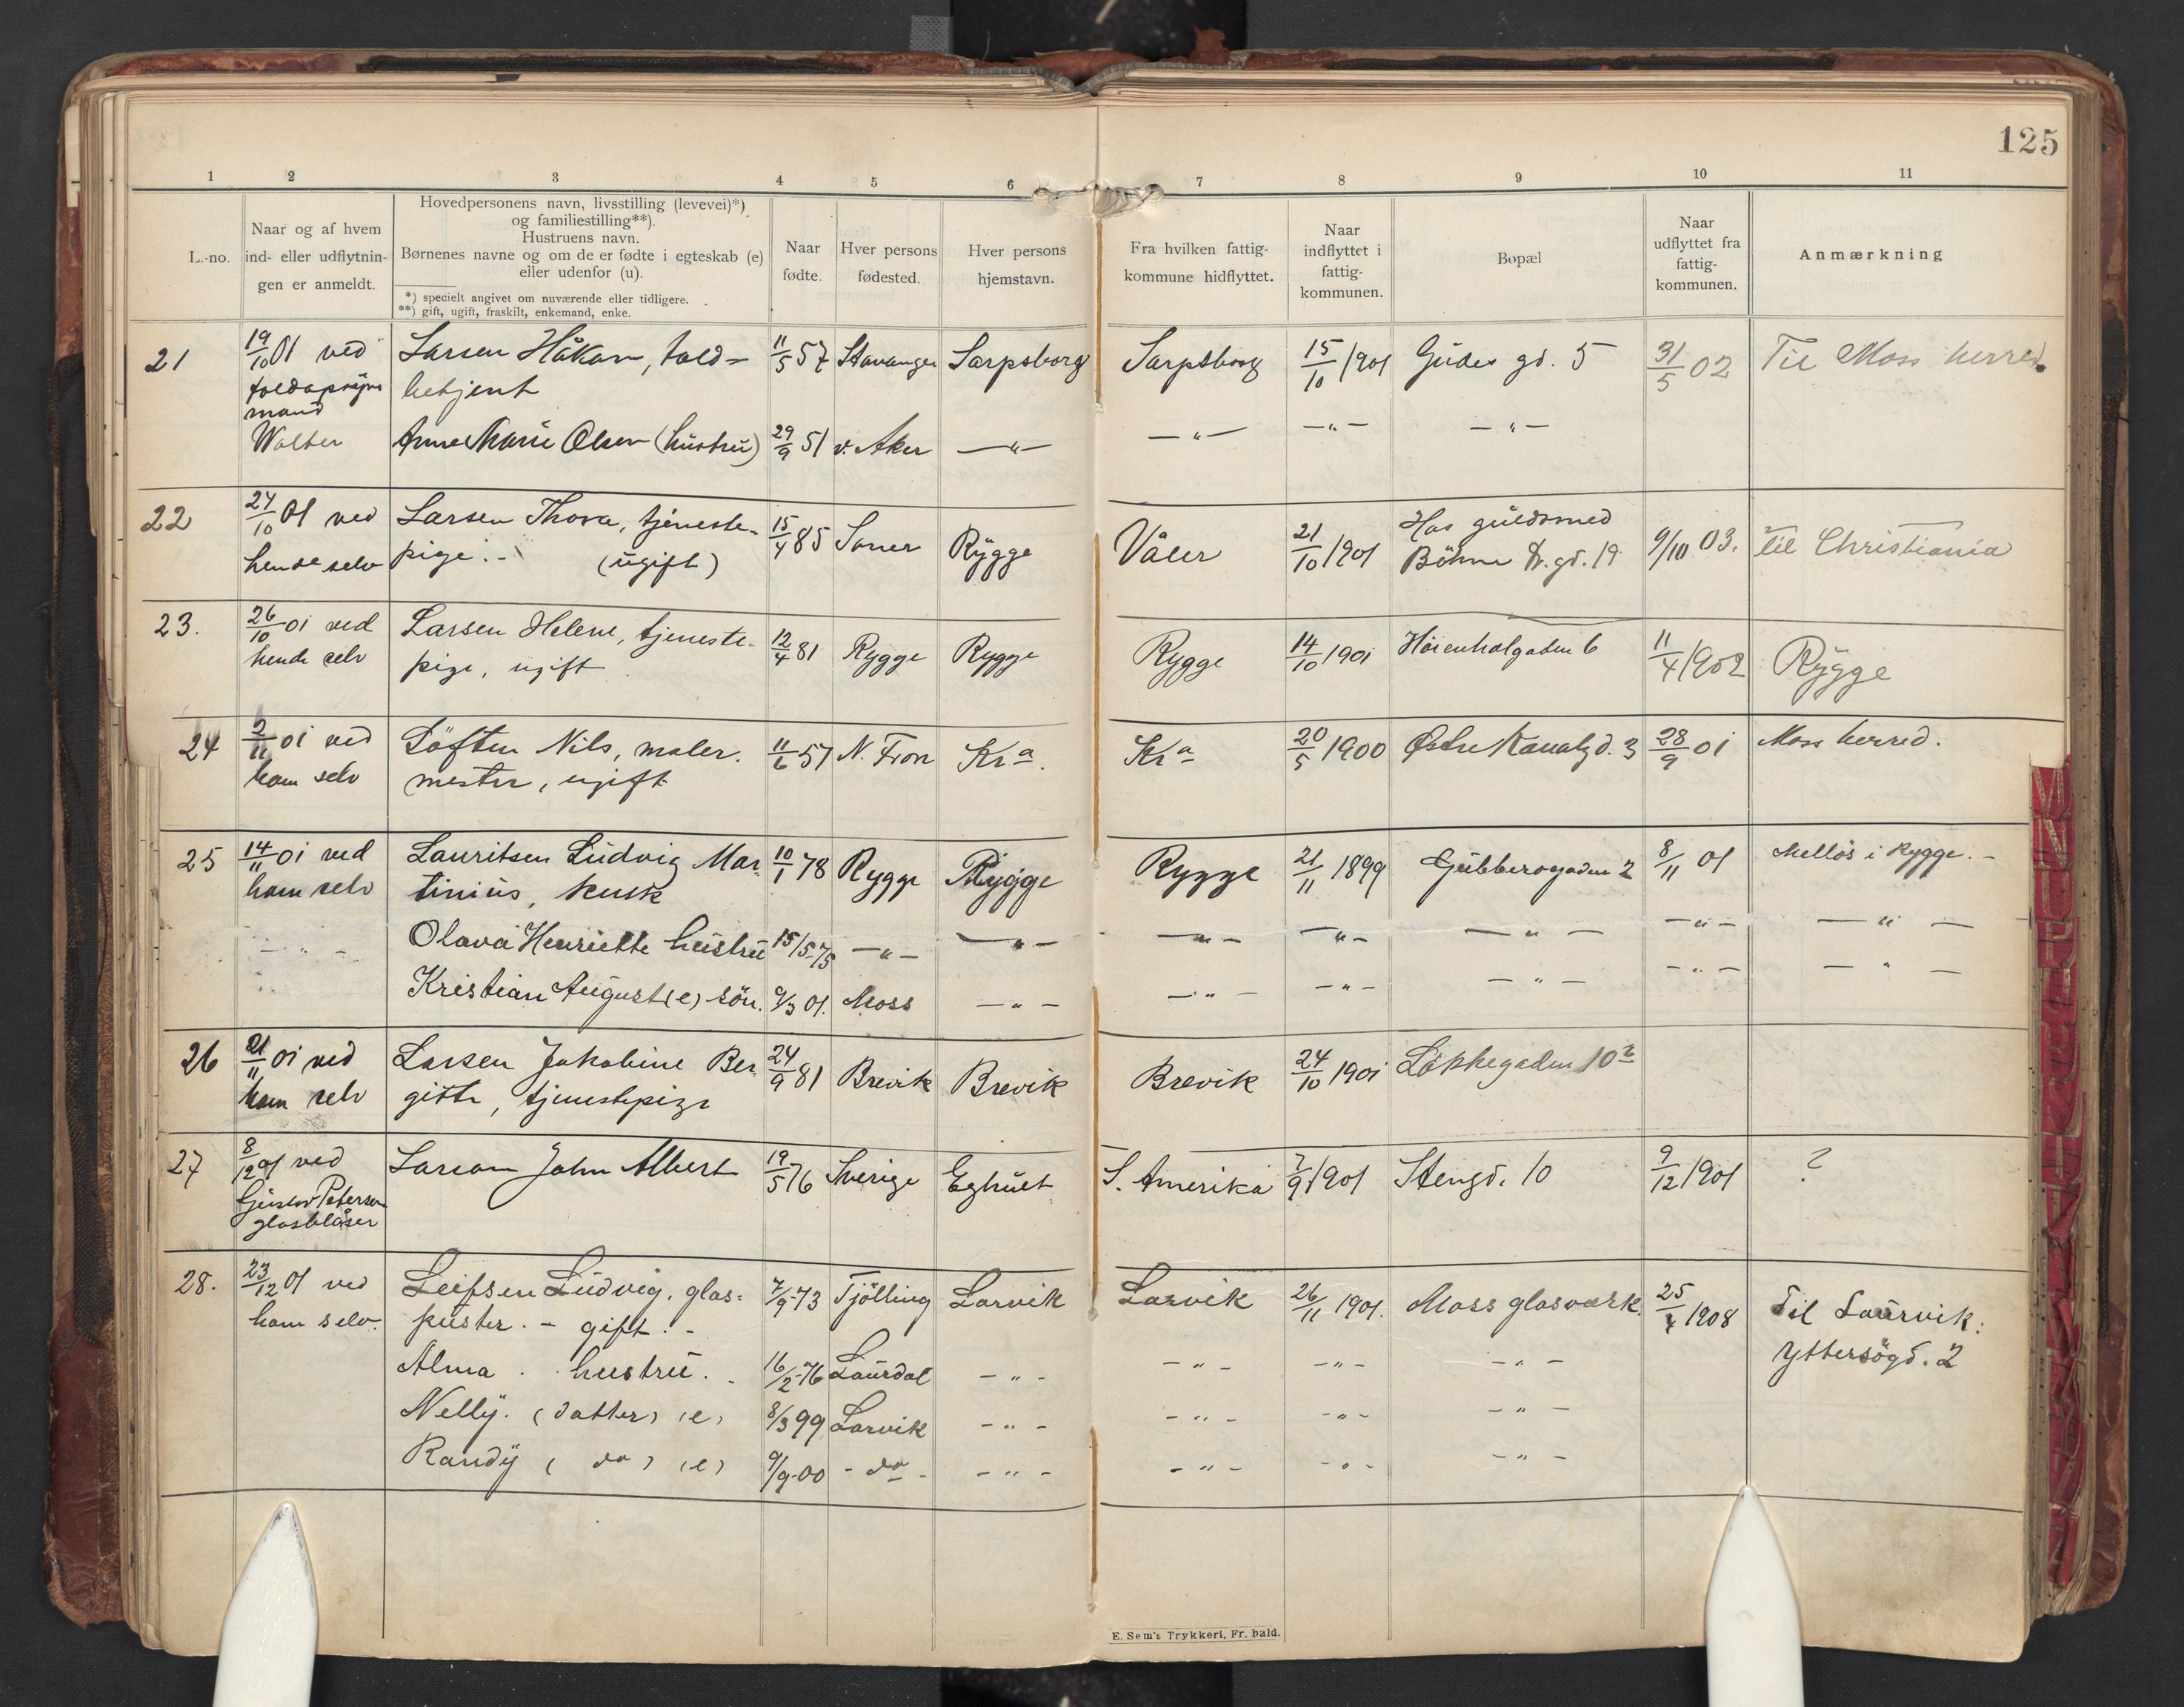 125
1 2 3 4 5 6 7 8 9 10 11
L.-no.
Naar og af hvem
ind- eller udflytnin-
gen er anmeldt.
Hovedpersonens navn, livsstilling (levevei)*)
og familiestilling**).
Hustruens navn.
Børnenes navne og om de er fødte i egteskab (e)
eller udenfor (u).
*) specielt angivet om nuværende eller tidligere.
**) gift, ugift, fraskilt, enkemand, enke.
Naar
fødte.
Hver persons
fødested.
Hver persons
hjemstavn.
Fra hvilken fattig-
kommune hidflyttet.
Naar
indflyttet i
fattig-
kommunen.
Bopæl
Naar
udflyttet fra
fattig-
kommunen.
Anmærkning
21 19/10 01 ved Larsen Håkan, told- 11/5 57 Stavanger Sarpsborg Sarpsborg 15/10 1901 Gudes gd. 5 31/5 02 Til Moss herred.
toldopsyns betjent
mand
Walter Anne Marie Olsen (hustru) 29/9 51 v. Aker —„— —„— —„— —„—
22 24/10 01 ved Larsen Thora, tjeneste- 15/4 85 Soner Rygge Våler 21/10 1901 Hos guldsmed 9/10 03. Til Christiania
hende selv pige.- (ugift) Böhme Dr. gd. 19
23. 26/10 01 ved Larsen Helene, tjeneste- 12/4 81 Rygge Rygge Rygge 14/10 1901 Höienhalgaden 6 11/4 1902 Rygge
hende selv pige, ugift
24 2/11 01 ved Löften Nils, maler- 11/6 57 N. Fron Kra. Kra 20/5 1900 Østre Kanalgd. 3 28/9 01 Moss herred.
ham selv mester, ugift
25 14/11 01 ved Lauritsen Ludvig Mar- 10/1 78 Rygge Rygge Rygge 21/11 1899 Gubberogaden 2 8/11 01 Mellös i Rygge.-
ham selv tinius, kusk
—„— Olava Henriette hustru 15/5-75 —„— —„— —„— —„— —„— —„— —„—
Kristian August (e) sön. 9/3 01. Moss —„— —„— —„— —„— —„— —„—
26 21/11 01 ved Larsen Jakobine Ber- 24/9 81 Brevik Brevik Brevik 24/10 1901 Løkkegaden 10
ham selv gitte, tjenestepige
27 8/12 01 ved Larson John Albert 19/5 76 Sverige Eghult S. Amerika 7/9 1901 Stengd. 10 9/12 1901 ?
Gustav Petersen
glasblåser
28. 23/12 01 ved Leifsen Ludvig, glas- 7/9-73 Tjölling Larvik Larvik 26/11 1901. Moss glasværk. 25/4 1908 Til Laurvik:
ham selv. puster.- gift.- Yttersögd. 2
Alma. hustru.- 16/2-76 Laurdal —„— —„— —„— —„—
Nelly. (datter) (e) 8/3 99 Larvik —„— —„— —„— —„—
Randy (do) (e) 9/9-00 - do - —„— —„— —„— —„—
E. Sem's Trykkeri, Fr. hald.